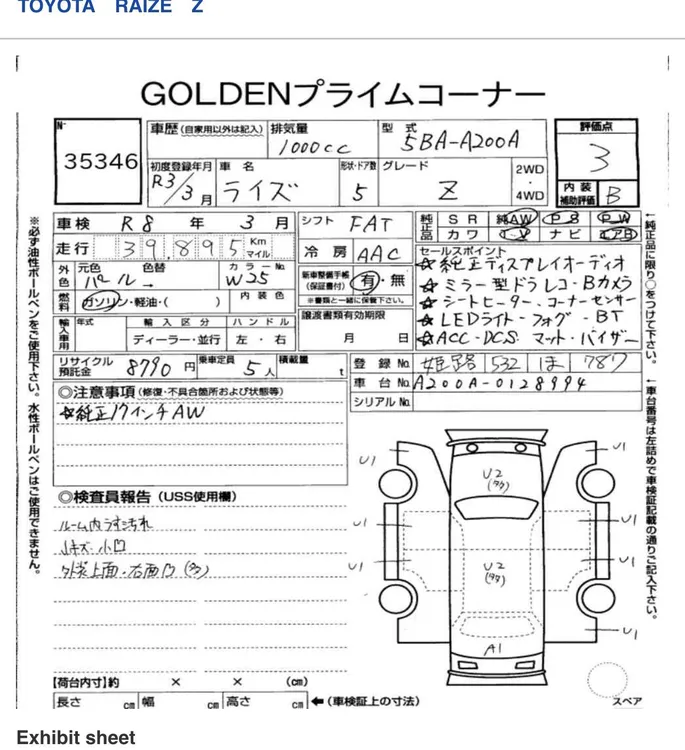 TOYOTA RAIZE Z
GOLDENプライムコーナー
No 35346
車歴(自家用以外は記入) 排気量 1000cc 型式 5BA-A200A
評価点 3
初度登録年月 R3/3月 車名 ライズ 形状・ドア数 5 グレード Z 2WD・4WD
内装補助評価 B
車検 R8年 3月 シフト FAT
純正品 SR 純AW PS PW
カワ TV ナビ エアB
走行 39,895 Km マイル 冷房 AAC
外色 元色 パール 色替 カラーNo. W25
新車整備手帳(保証書付) 有・無
※書類と一緒に保管下さい。
燃料 ガソリン・軽油・( ) 内装色
譲渡書類有効期限 月 日
輸入車用 年式 輸入区分 ディーラー・並行 ハンドル 左・右
セールスポイント
☆純正ディスプレイオーディオ
☆ミラー型ドラレコ・Bカメラ
☆シートヒーター、コーナーセンサー
☆LEDライト・フォグ・BT
☆ACC・DCS マット・バイザー
リサイクル預託金 8790円 乗車定員 5人 積載量 t
登録No. 姫路 532 ほ 787
車台No. A200A-0128994
シリアルNo.
◎注意事項(修復・不具合箇所および状態等)
☆純正17インチAW
◎検査員報告(USS使用欄)
ルーム内うすヨゴレ
小キズ・小凹
外装上面・右面凹(多)
U1
U1
U2
(多)
U1
U1
U1
U2
(多)
A1
U1
【荷台内寸】約 × × (cm)
長さ cm 幅 cm 高さ cm ←(車検証上の寸法)
スペア
※必ず油性ボールペンをご使用下さい。水性ボールペンはご使用できません。
←純正品に限り○をつけて下さい。
←車台番号は左詰めで車検証記載の通りご記入下さい。
Exhibit sheet